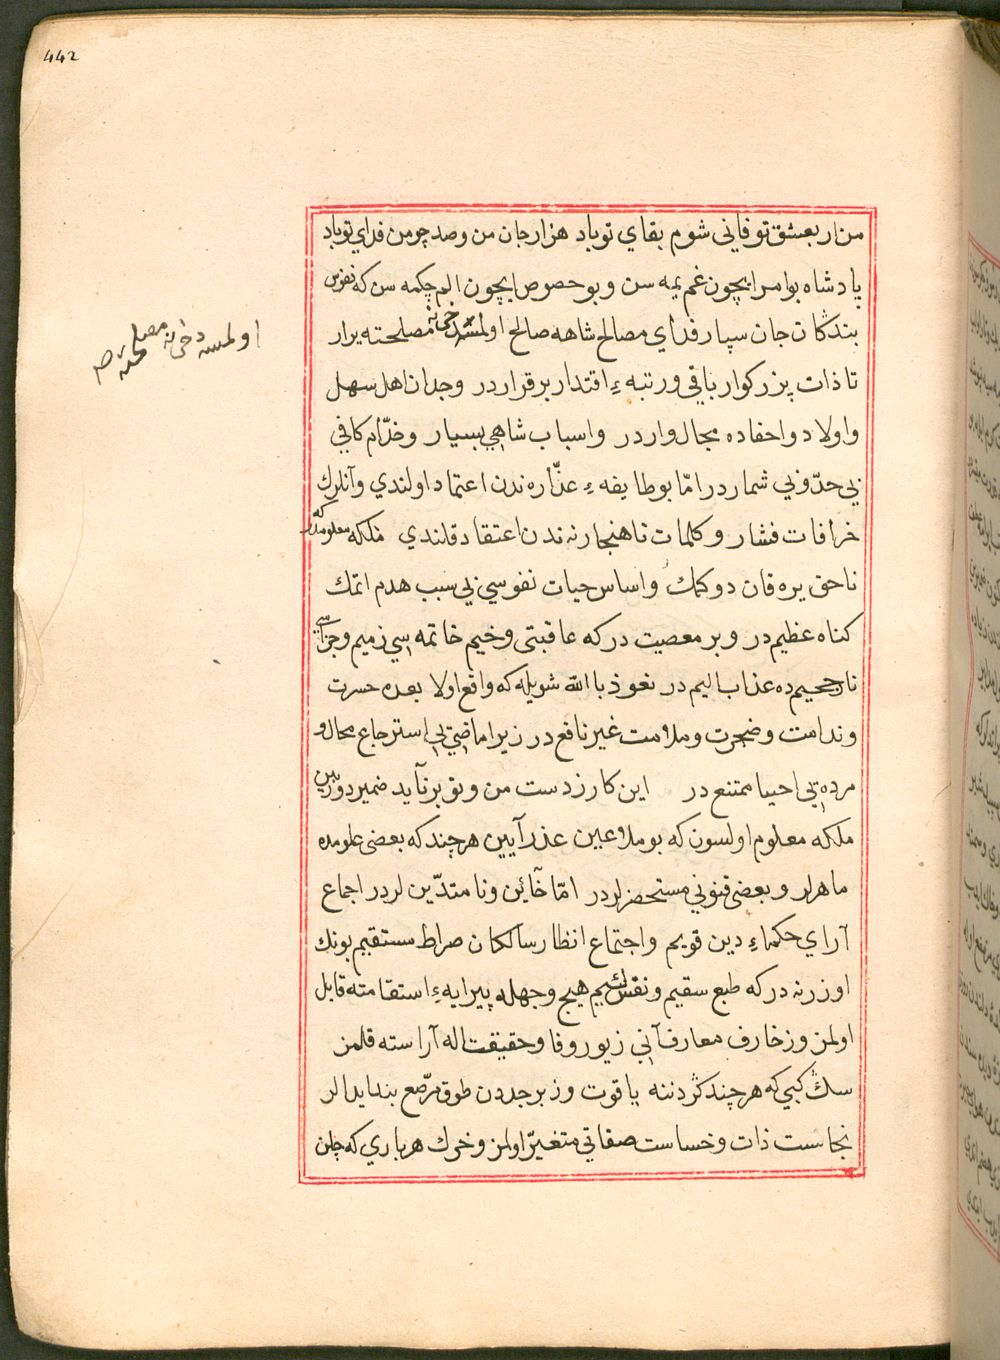 442
من ار بعشق تو فانی شوم بقاي تو باد هزار جان من و صد چو من فداي تو باد
پادشاه بو امر ایچون غم یمه سن و بو حصوص ایچون الم چکمه سن که نفوس
بندکان جان سپار فداي مصالح شاهه صالح اولمسه دخی نه مصلحته یرار
تا ذات بزرکوار باقی و رتبهٔ اقتدار برقرار در وجدان اهل سهل
و اولاد و احفاده مجال وار در و اسباب شاهي بسیار و خدّام کافي
بي حدّ و بي شمار در امّا بو طایفهٔ غدّاره ندن اعتماد اولندي و آنلرك
خرافات فشار و کلمات ناهنجارنه ندن اعتقاد قلندي ملکه معلومدر که
ناحق یره قان دوکمك و اساس حیات نفوسي بي سبب هدم اتمك
کناه عظیم در و بر معصیت در که عاقبتی وخیم خاتمه سي زمیم و جزاسي
نار جحیمده عذاب الیم در نعوذ بالله شویله که واقع اولا بعده حسرت
و ندامت و ضجرت و ملامت غیر نافع در زیرا ماضي یي استرجاع محال و
مرده یي احیا ممتنع در این کار ز دست من و تو بر نآید ضمیر دوربین
ملکه معلوم اولسون که بو ملاعین عذر آیین هر چند که بعضی علومده
ماهرلر و بعضی فنوني مستحضرلر در امّا خآئن و نا متدّین لر در اجماع
آراي حکماءِ دین قویم و اجتماع انظار سالکان صراط مستقیم بونك
اوزرنه در که طبع سقیم و نفس لئیم هیچ وجهله پیرایهٔ استقامته قابل
اولمز و زخارف معارف آني زیور وفا و حقیقت اله آراسته قلمز
سك کبي که هر چند کردننه یاقوت و زبرجددن طوق مرّصع بند ایدالر
نجاست ذات و خساست صفاتي متغیّر اولمز و خرك هر باري که چلن
اولمسه دخی نه مصلحته صح